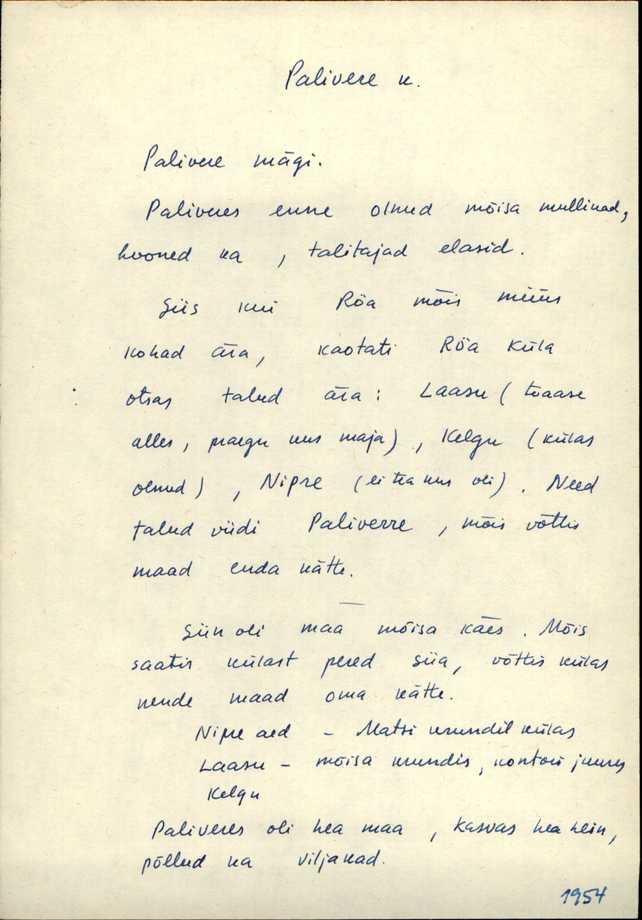 Palivere k.
Palivere mägi.
Paliveres enne olnud mõisa mullikad,
hooned ka, talitajad elasid.
Siis kui Röa mõis müüs
kohad ära, kaotati Röa küla
otsas talud ära: Laasu (toaase
alles, praegu uus maja), Kelgu (külas
olnud), Nipre (ei tea kus oli). Need
talud viidi Paliverre, mõis võttis
maad enda kätte.
Siin oli maa mõisa käes. Mõis
saatis külast pered siia, võttis külas
nende maad oma kätte.
Nipre aed - Matsi krundil külas
Laasu - mõisa krundis, kontori juures
Kelgu
Paliveres oli hea maa, kasvas hea hein,
põllud ka viljakad.
1954